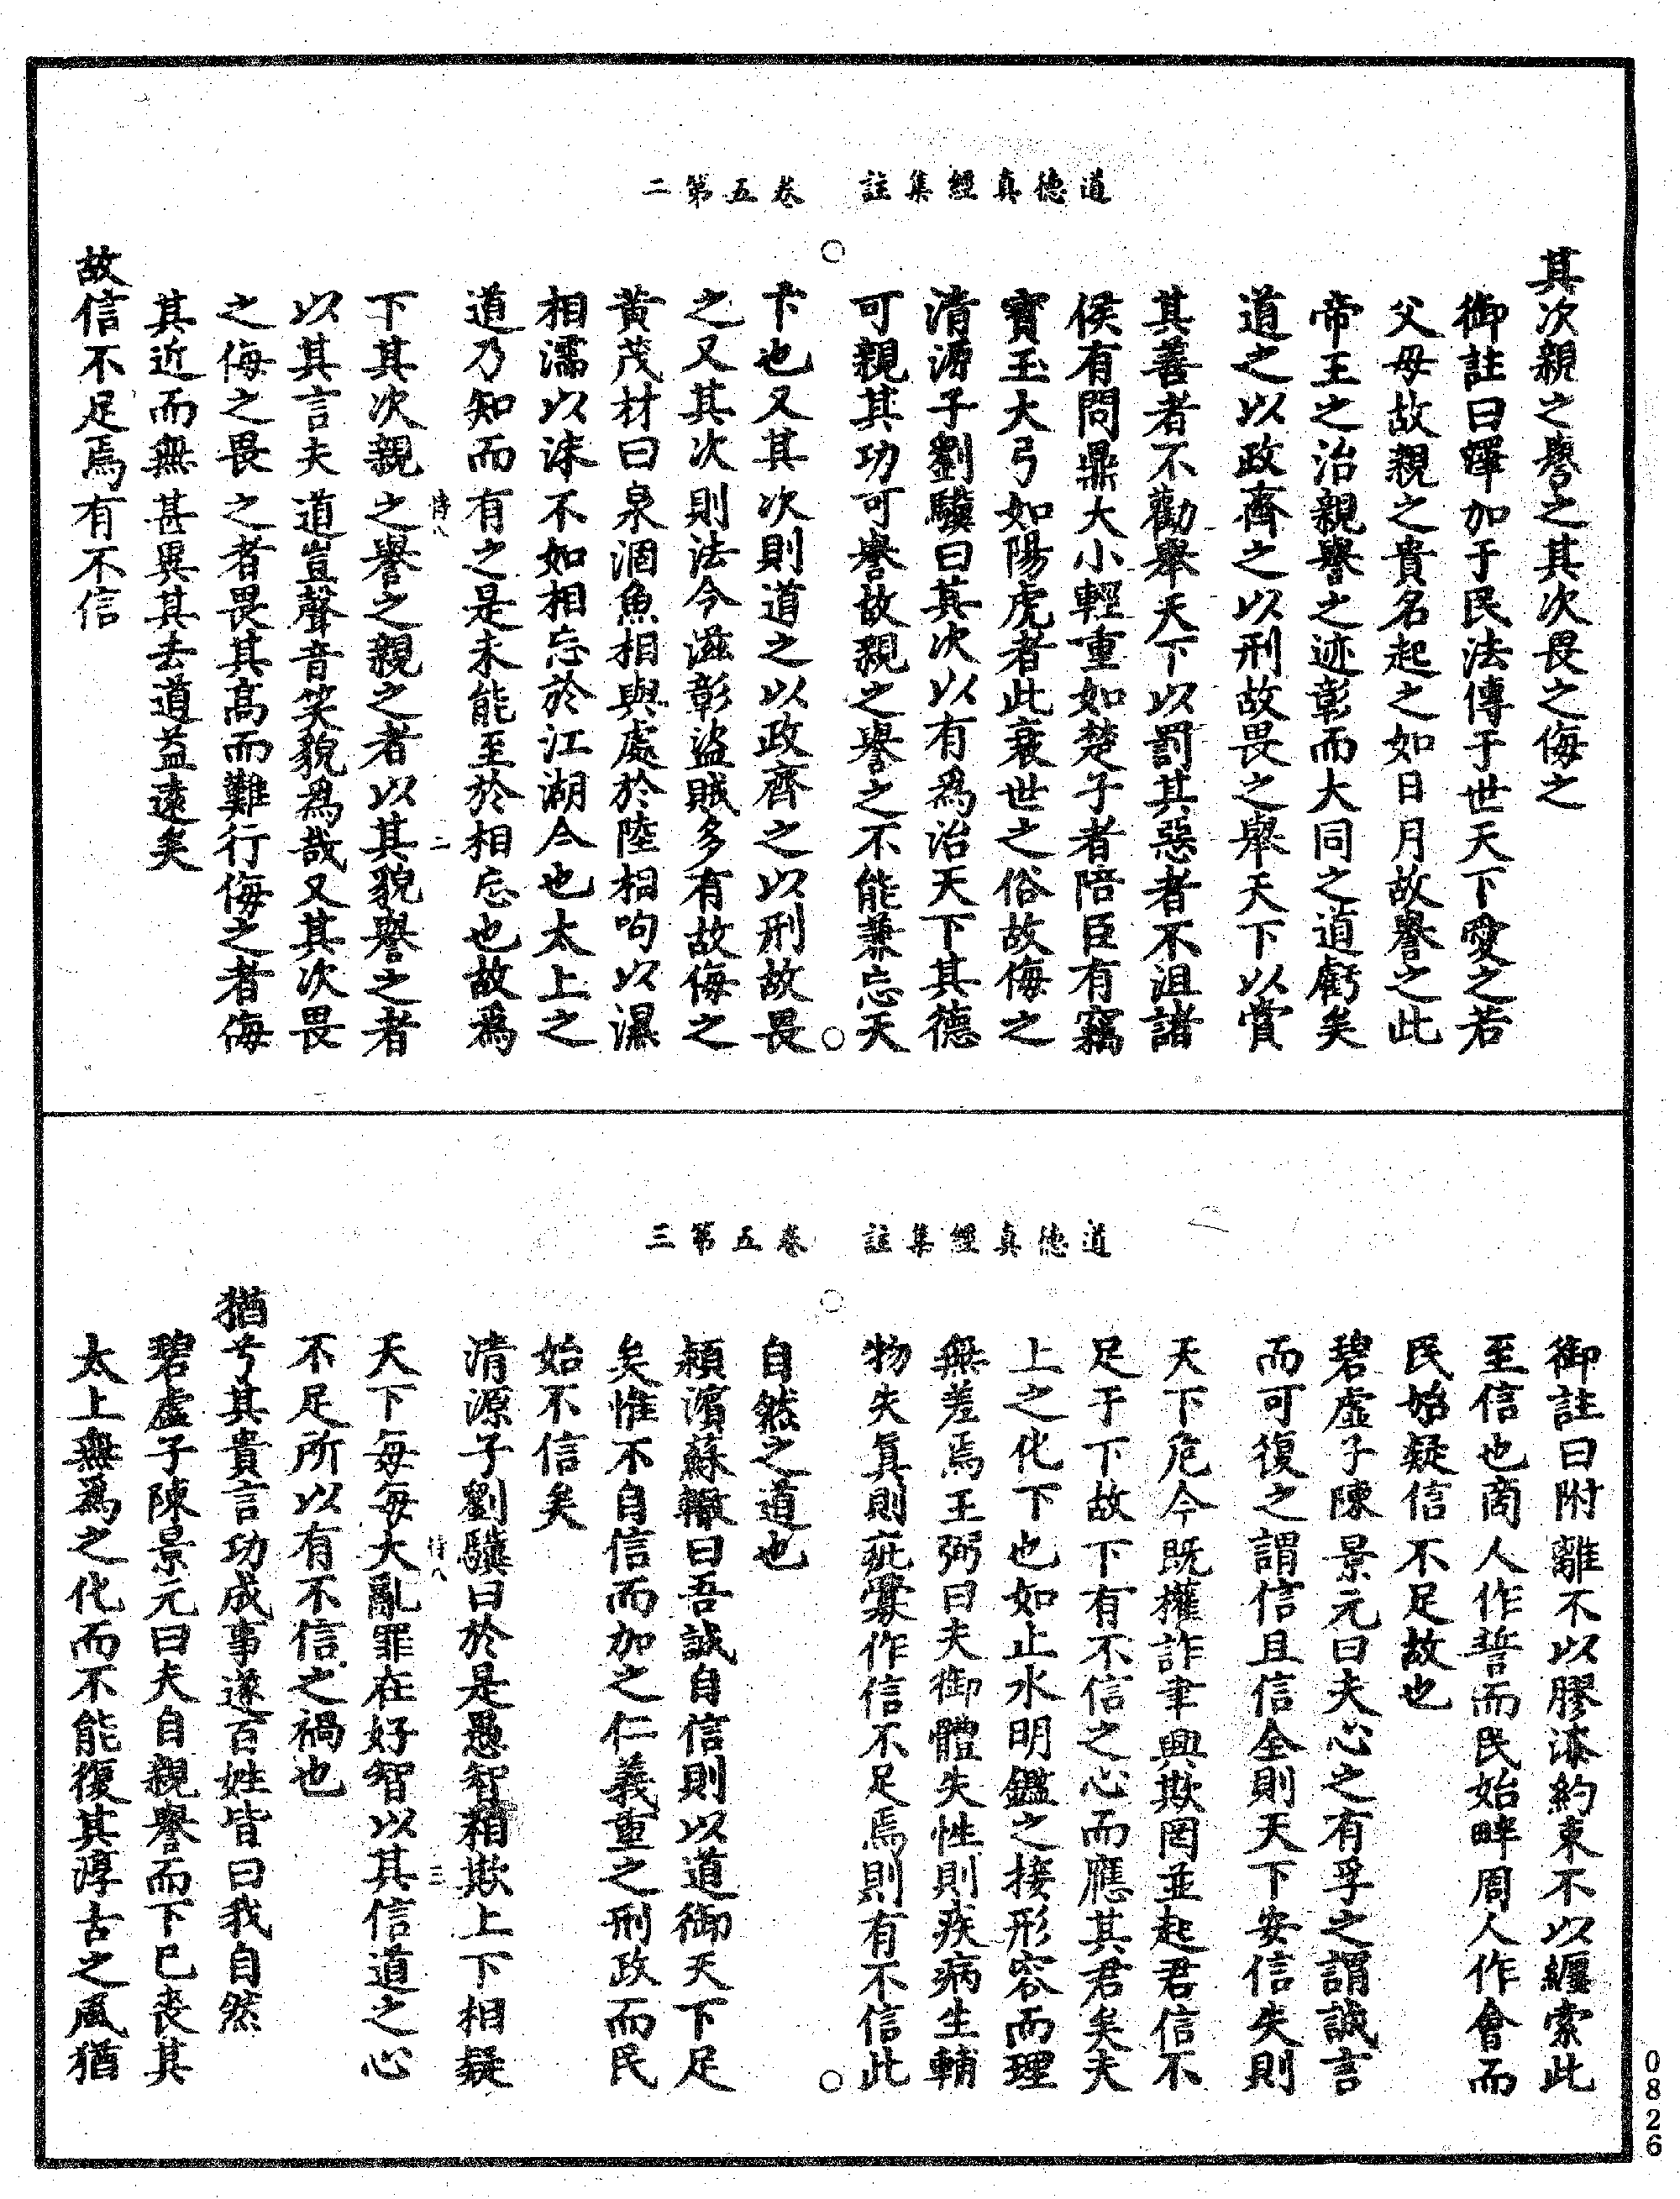 道德真經集註　卷五第二
其次親之譽之其次畏之侮之
御註曰暉加于民法傳于世天下愛之若
父母故親之貴名起之如日月故譽之此
帝王之治親譽之迹彰而大同之道虧矣
道之以政齊之以刑故畏之舉天下以賞
其善者不勸舉天下以罰其惡者不沮諸
侯有問鼎大小輕重如楚子者陪臣有竊
寶玉大弓如陽虎者此衰世之俗故侮之
清源子劉驥曰其次以有爲治天下其德
可親其功可譽故親之譽之不能兼忘天
下也又其次則道之以政齊之以刑故畏
之又其次則法令滋彰盜賊多有故侮之
黃茂材曰泉涸魚相與處於陸相呴以濕
相濡以沫不如相忘於江湖今也太上之
道乃知而有之是未能至於相忘也故爲
下其次親之譽之親之者以其貌譽之者
以其言夫道豈聲音笑貌爲哉又其次畏
之侮之畏之者畏其高而難行侮之者侮
其近而無甚異其去道益遠矣
故信不足焉有不信
道德真經集註　卷五第三
御註曰附離不以膠漆約束不以纆索此
至信也商人作誓而民始畔周人作會而
民始疑信不足故也
碧虛子陳景元曰夫心之有孚之謂誠言
而可復之謂信且信全則天下安信失則
天下危今既權詐聿興欺罔並起君信不
足于下故下有不信之心而應其君矣夫
上之化下也如止水明鑑之接形容而理
無差焉王弼曰夫御體失性則疾病生輔
物失真則疵釁作信不足焉則有不信此
自然之道也
潁濱蘇轍曰吾誠自信則以道御天下足
矣惟不自信而加之仁義重之刑政而民
始不信矣
清源子劉驥曰於是愚智相欺上下相疑
天下每每大亂罪在好智以其信道之心
不足所以有不信之禍也
猶兮其貴言功成事遂百姓皆曰我自然
碧虛子陳景元曰夫自親譽而下已喪其
太上無爲之化而不能復其淳古之風猶
0826